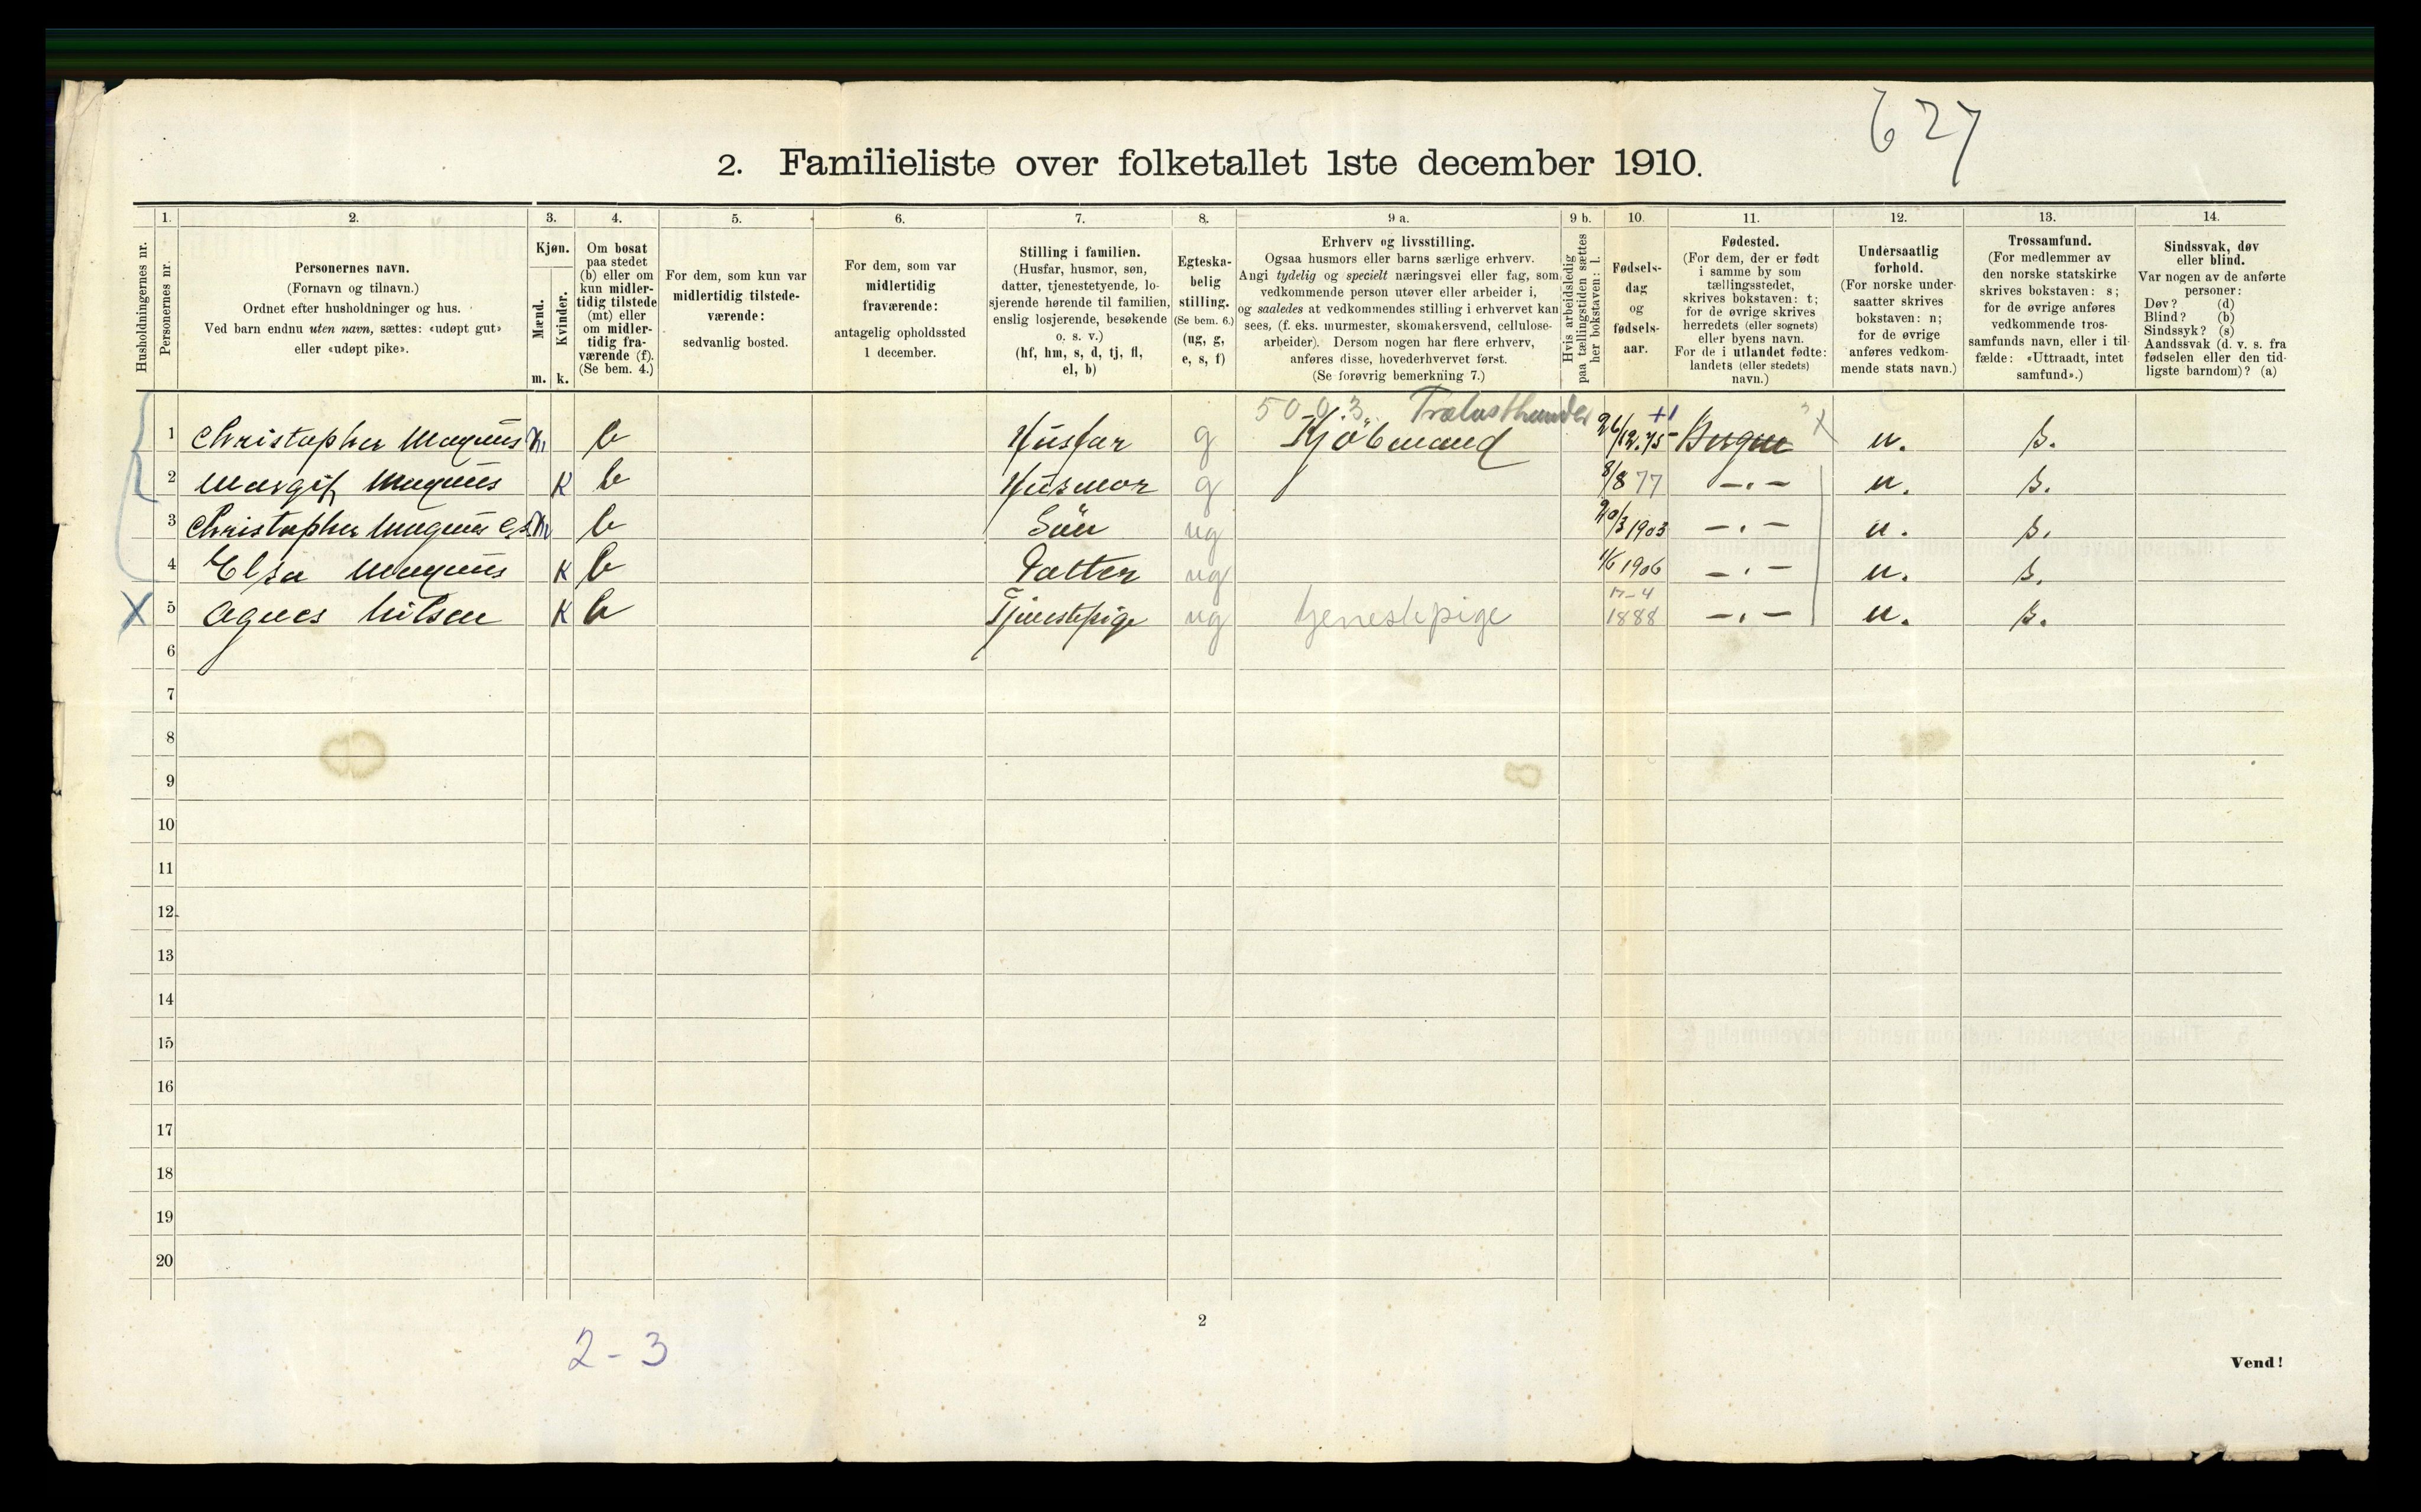 627
2. Familieliste over folketallet 1ste december 1910.
1. 2. 3. 4. 5. 6. 7. 8. 9 a. 9 b. 10. 11. 12. 13. 14.
Husholdningernes nr.
Personernes nr.
Personernes navn.
(Fornavn og tilnavn.)
Ordnet efter husholdninger og hus.
Ved barn endnu uten navn, sættes: «udøpt gut»
eller «udøpt pike».
Kjøn.
Mænd.
Kvinder.
m. k.
Om bosat
paa stedet
(b) eller om
kun midler-
tidig tilstede
(mt) eller
om midler-
tidig fra-
værende (f).
(Se bem. 4.)
For dem, som kun var
midlertidig tilstede-
værende:
sedvanlig bosted.
For dem, som var
midlertidig
fraværende:
antagelig opholdssted
1 december.
Stilling i familien.
(Husfar, husmor, søn,
datter, tjenestetyende, lo-
sjerende hørende til familien,
enslig losjerende, besøkende
o. s. v.)
(hf, hm, s, d, tj, fl,
el, b)
Egteska-
belig
stilling.
(Se bem. 6.)
(ug, g,
e, s, f)
Erhverv og livsstilling.
Ogsaa husmors eller barns særlige erhverv.
Angi tydelig og specielt næringsvei eller fag, som
vedkommende person utøver eller arbeider i,
og saaledes at vedkommendes stilling i erhvervet kan
sees, (f. eks. murmester, skomakersvend, cellulose-
arbeider). Dersom nogen har flere erhverv,
anføres disse, hovederhvervet først.
(Se forøvrig bemerkning 7.)
Hvis arbeidsledig
paa tællingstiden sættes
her bokstaven: l.
Fødsels-
dag
og
fødsels-
aar.
Fødested.
(For dem, der er født
i samme by som
tællingsstedet,
skrives bokstaven: t;
for de øvrige skrives
herredets (eller sognets)
eller byens navn.
For de i utlandet fødte:
landets (eller stedets)
navn.)
Undersaatlig
forhold.
(For norske under-
saatter skrives
bokstaven: n;
for de øvrige
anføres vedkom-
mende stats navn.)
Trossamfund.
(For medlemmer av
den norske statskirke
skrives bokstaven: s;
for de øvrige anføres
vedkommende tros-
samfunds navn, eller i til-
fælde: «Uttraadt, intet
samfund».)
Sindssvak, døv
eller blind.
Var nogen av de anførte
personer:
Døv? (d)
Blind? (b)
Sindssyk? (s)
Aandssvak (d. v. s. fra
fødselen eller den tid-
ligste barndom)? (a)
5003. Trælasthandel
1 Christopher Magnus m b Husfar g Kjöbmand 26/12.75 +1 Bergen X n. s.
2 Margit Magnus K b Husmor g 8/8 77 —„— n. s.
3 Christopher Magnus m b Sön ug 20/3 1903 —„— n. s.
4 Elsa Magnus K b Datter ug 1/6 1906 —„— n. s.
X 5 Agnes Nilsen K b Tjenestepige ug tjenestepige 17-4 1888 —„— n. s.
6
7
8
9
10
11
12
13
14
15
16
17
18
19
20
2
2-3
Vend!